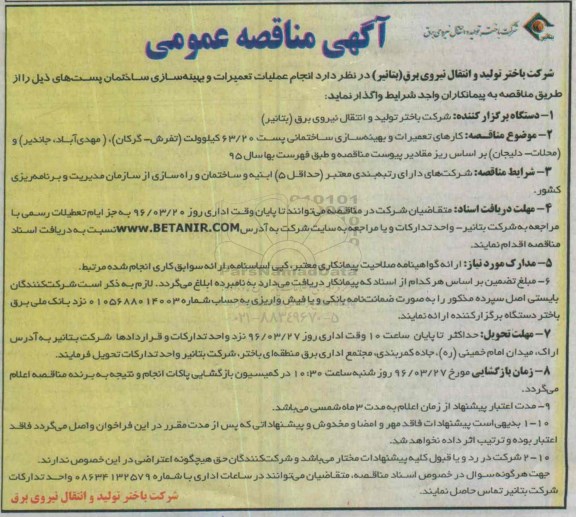 شرکت باختر تولید و انتقال نیروی برق
آگهی مناقصه عمومی
شرکت باختر تولید و انتقال نیروی برق (بتانیر) در نظر دارد انجام عملیات تعمیرات و بهینه‌سازی ساختمان پست‌های ذیل را از
طریق مناقصه به پیمانکاران واجد شرایط واگذار نماید:
۱- دستگاه برگزار کننده: شرکت باختر تولید و انتقال نیروی برق (بتانیر)
۲- موضوع مناقصه: کارهای تعمیرات و بهینه‌سازی ساختمانی پست ۶۳/۲۰ کیلوولت (تفرش- گرکان)، ( مهدی‌آباد، جاندیر) و
(محلات- دلیجان) بر اساس ریز مقادیر پیوست مناقصه و طبق فهرست بها سال ۹۵
۳- شرایط مناقصه: شرکت‌های دارای رتبه‌بندی معتبر (حداقل ۵) ابنیه و ساختمان و راه‌سازی از سازمان مدیریت و برنامه‌ریزی
کشور.
۴- مهلت دریافت اسناد: متقاضیان شرکت در مناقصه می‌توانند تا پایان وقت اداری روز ۹۶/۰۳/۲۰ به جز ایام تعطیلات رسمی با
مراجعه به شرکت بتانیر- واحد تدارکات و یا مراجعه به سایت شرکت به آدرس WWW.BETANIR.COM نسبت به دریافت اسناد
مناقصه اقدام نمایند.
۵- مدارک مورد نیاز: ارائه گواهینامه صلاحیت پیمانکاری معتبر، کپی اساسنامه، ارائه سوابق کاری انجام شده مرتبط.
۶- مبلغ تضمین بر اساس هر کدام از اسناد که پیمانکار دریافت می‌دارد به نامبرده ابلاغ می‌گردد. لازم به ذکر است شرکت‌کنندگان
بایستی اصل سپرده مذکور را به صورت ضمانتنامه بانکی و یا فیش واریزی به حساب شماره ۰۱۰۵۶۸۸۰۱۴۰۰۳ نزد بانک ملی برق
باختر دستگاه برگزارکننده ارائه نمایند.
۰۲۱-۸۸۳۴۹۶۷۰-۵
۷- مهلت تحویل: حداکثر تا پایان ساعت ۱۰ وقت اداری روز ۹۶/۰۳/۲۷ نزد واحد تدارکات و قراردادها شرکت بتانیر به آدرس
اراک، میدان امام خمینی (ره)، جاده کمربندی، مجتمع اداری برق منطقه‌ای باختر، شرکت بتانیر واحد تدارکات تحویل فرمایند.
۸- زمان بازگشایی مورخ ۹۶/۰۳/۲۷ روز شنبه ساعت ۱۰:۳۰ در کمیسیون بازگشایی پاکات انجام و نتیجه به برنده مناقصه اعلام
می‌گردد.
۹- مدت اعتبار پیشنهاد از زمان اعلام به مدت ۳ ماه شمسی می‌باشد.
۱-۱۰ بدیهی است پیشنهادات فاقد مهر و امضا و مخدوش و پیشنهاداتی که پس از مدت مقرر در این فراخوان واصل می‌گردد فاقد
اعتبار بوده و ترتیب اثر داده نخواهد شد.
۲-۱۰ شرکت در رد و یا قبول کلیه پیشنهادات مختار می‌باشد و شرکت‌کنندگان حق هیچگونه اعتراضی در این خصوص ندارند.
جهت هرگونه سوال در خصوص اسناد مناقصه، متقاضیان می‌توانند در ساعات اداری با شماره ۰۸۶۳۴۱۳۲۵۷۹ واحد تدارکات
شرکت بتانیر تماس حاصل نمایند.
شرکت باختر تولید و انتقال نیروی برق